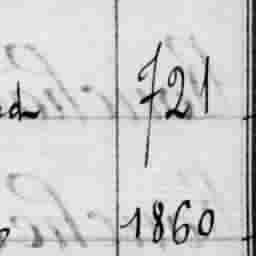 721
1860